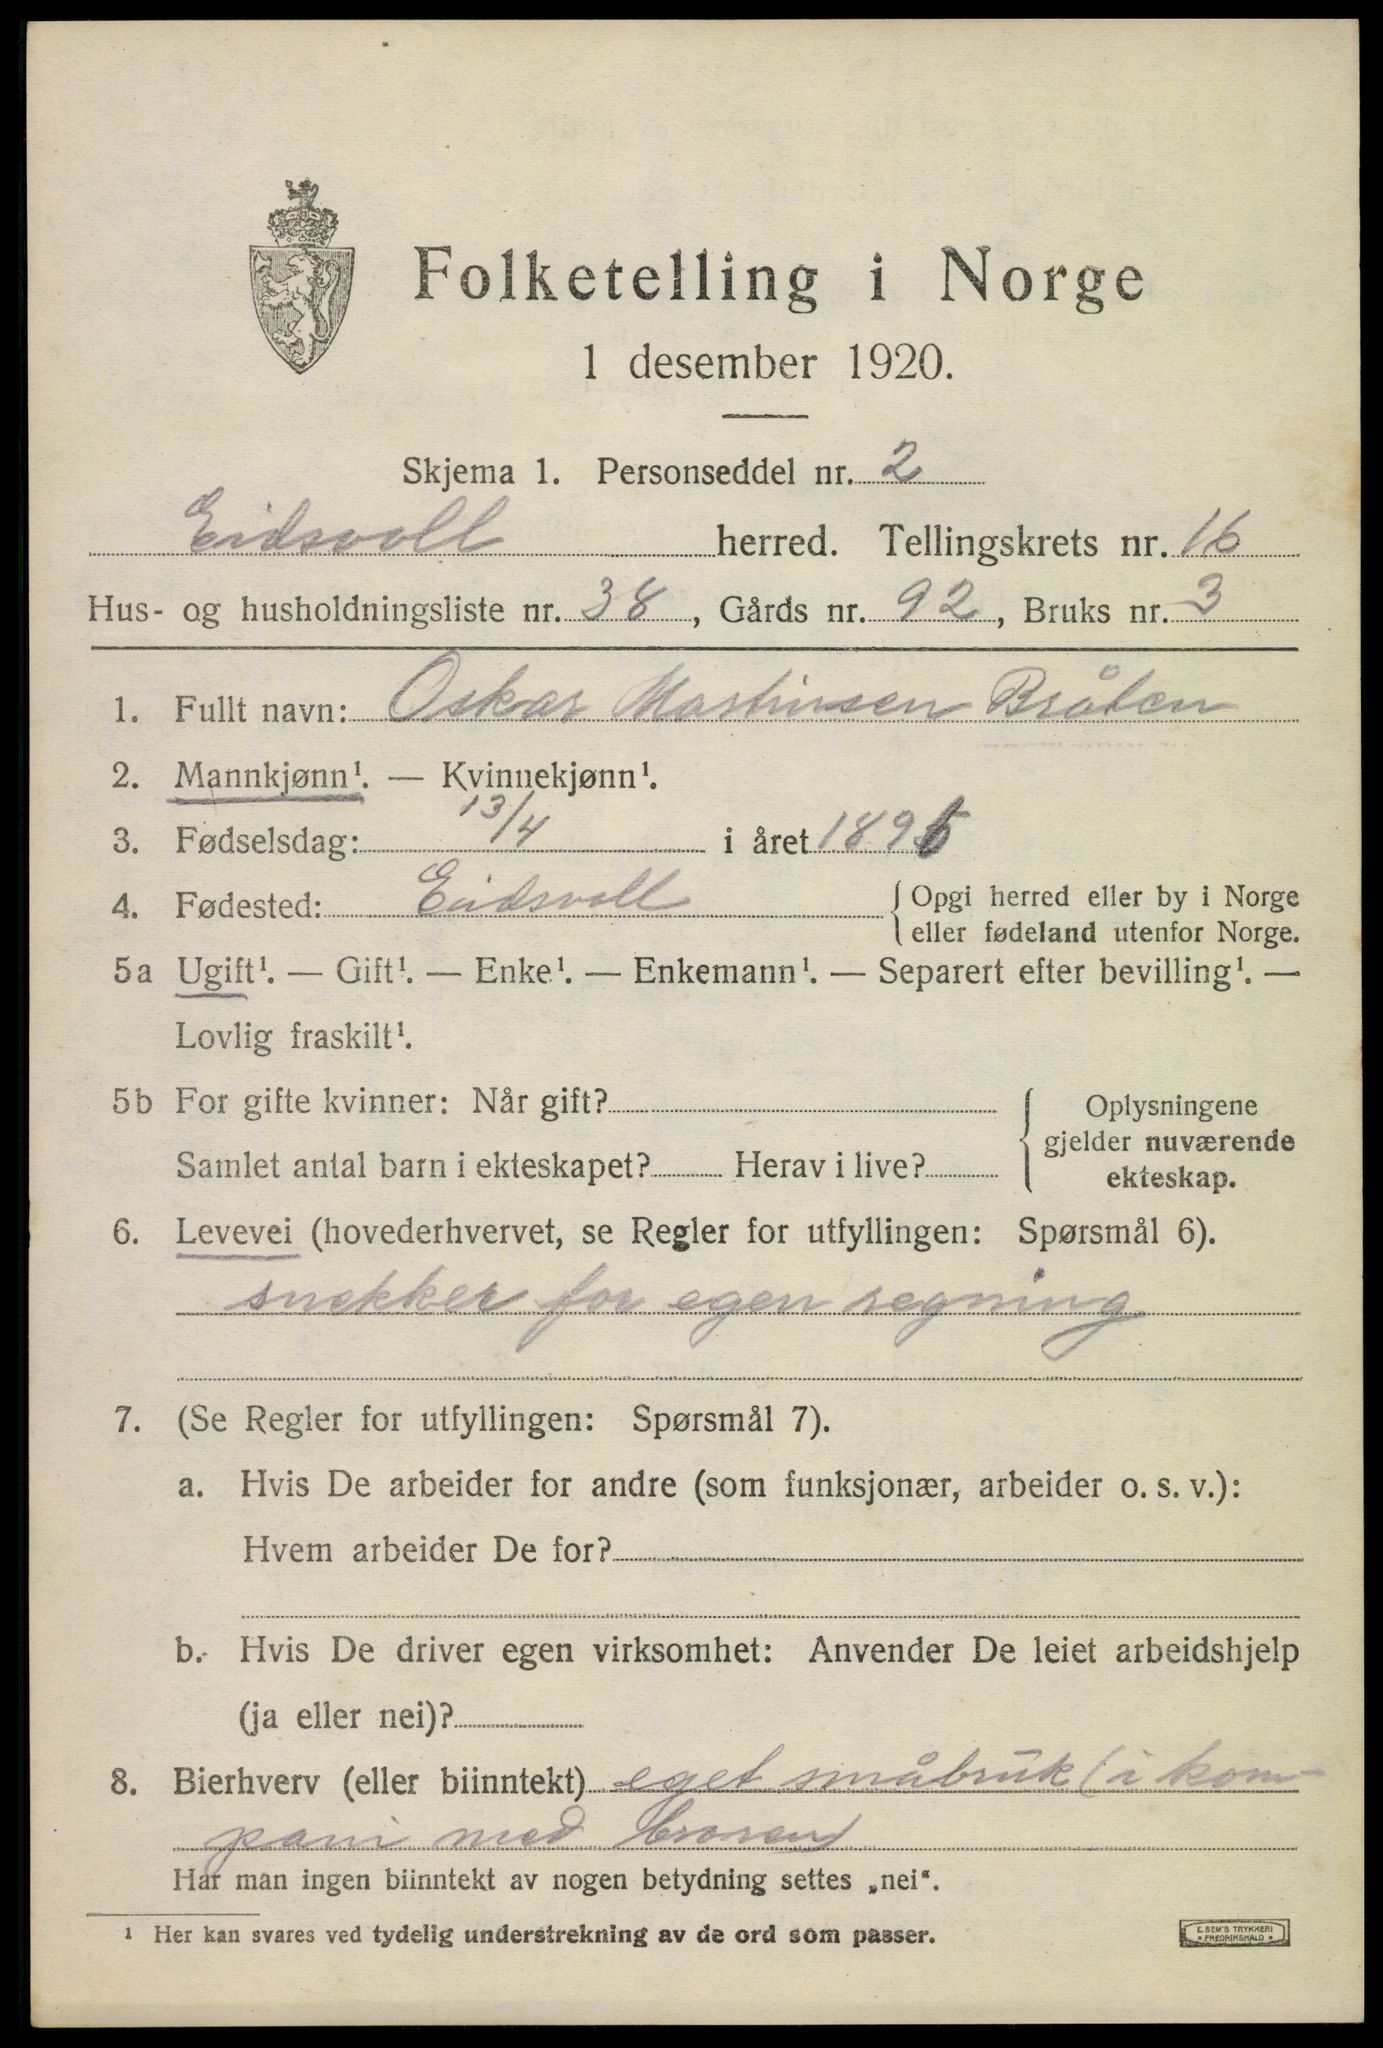 Folketelling i Norge
1 desember 1920.
Skjema 1. Personseddel nr. 2
Eidsvoll herred. Tellingskrets nr. 16
Hus- og husholdningsliste nr. 38, Gårds nr. 92, Bruks nr. 3
1. Fullt navn: Oskar Martinsen Bråten
2. Mannkjønn¹. — Kvinnekjønn¹.
3. Fødselsdag: 13/4 i året 1895
4. Fødested: Eidsvoll { Opgi herred eller by i Norge
eller fødeland utenfor Norge.
5a Ugift¹. — Gift¹. — Enke¹. — Enkemann¹. — Separert efter bevilling¹. —
Lovlig fraskilt¹.
5b For gifte kvinner: Når gift?
Samlet antal barn i ekteskapet? Herav i live?
Oplysningene
gjelder nuværende
ekteskap.
6. Levevei (hovederhvervet, se Regler for utfyllingen: Spørsmål 6).
snekker for egen regning
7. (Se Regler for utfyllingen: Spørsmål 7).
a. Hvis De arbeider for andre (som funksjonær, arbeider o. s. v.):
Hvem arbeider De for?
b. Hvis De driver egen virksomhet: Anvender De leiet arbeidshjelp
(ja eller nei)?
8. Bierhverv (eller biinntekt) eget småbruk (i kom-
pani med broren)
Har man ingen biinntekt av nogen betydning settes „nei“.
¹ Her kan svares ved tydelig understrekning av de ord som passer.
E. SEM'S TRYKKERI
• FREDRIKSHALD •